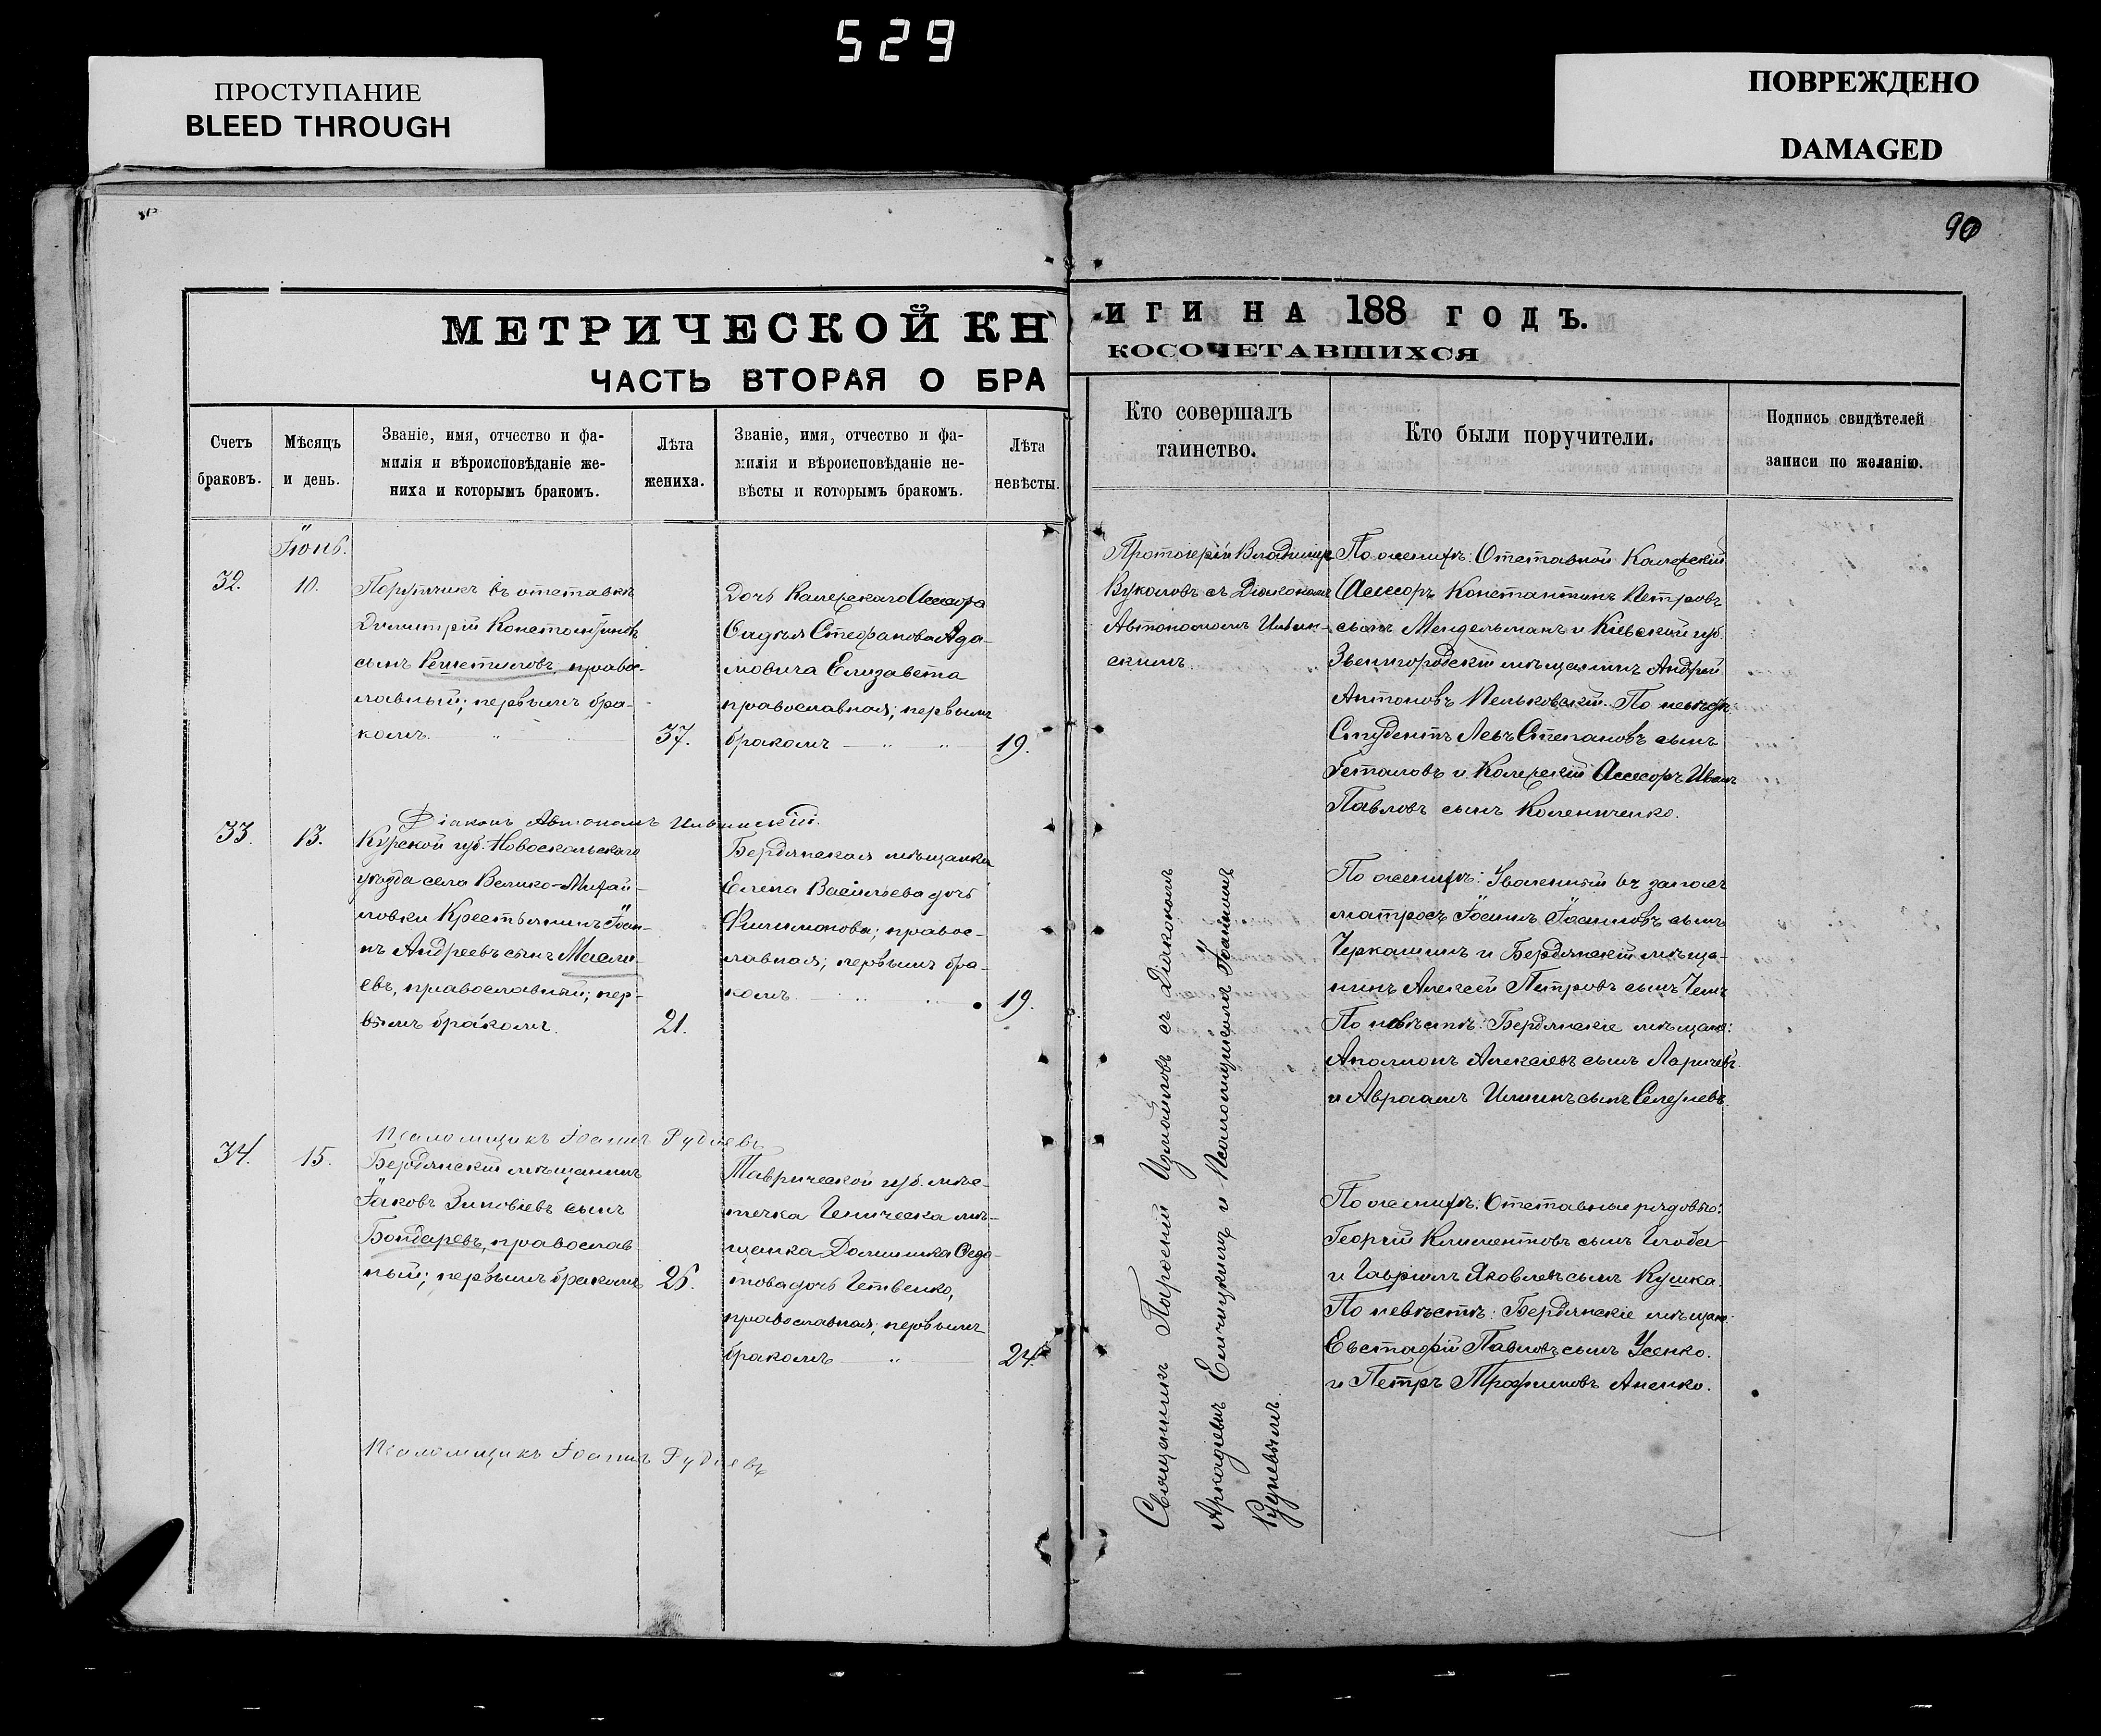 529
ПРОСТУПАНИЕ
BLEED THROUGH
ПОВРЕЖДЕНО
DAMAGED
90
МЕТРИЧЕСКОЙ КН
ИГИ НА 188 ГОДЪ.
ЧАСТЬ ВТОРАЯ О БРА
КОСОЧЕТАВШИХСЯ
Счетъ
браковъ.
Мѣсяцъ
и день.
Званіе, имя, отчество и фа-
милія и вѣроисповѣданіе же-
ниха и которымъ бракомъ.
Лѣта
жениха.
Званіе, имя, отчество и фа-
милія и вѣроисповѣданіе не-
вѣсты и которымъ бракомъ.
Лѣта
невѣсты.
Кто совершалъ
таинство.
Кто были поручители.
Подпись свидѣтелей
записи по желанію.
Іюнь.
32.
10.
Поручикъ въ отставкѣ
Димитрій Константиновъ
сынъ Решетиловъ, правос-
лавный; первымъ бра-
комъ.
37.
Дочь Коллежскаго Ассесора
Фадѣя Стефанова Ада-
мовича Елизавета
православная; первымъ
бракомъ
19.
Протоіерей Владиміръ
Вуколовъ съ Діакономъ
Автономомъ
скимъ.
По женихѣ: Отставной Коллежскій
Ассесоръ Константинъ Петровъ
сынъ Мендельманъ и Кіевской губ.
Звенигородскій мѣщанинъ Андрей
Антоновъ Пельковскій. По невѣстѣ:
Студентъ Левъ Степановъ сынъ
и Коллежскій Ассесоръ Иванъ
Павловъ сынъ Коленченко.
Діаконъ Автономъ
33.
13.
Курской губ. Новоскольскаго
уѣзда села Велико-Михай-
ловки Крестьянинъ Іоан-
нъ Андреевъ сынъ Масли-
евъ, православный; пер-
вымъ бракомъ.
21.
Бердянская мѣщанка
Елена Васильева дочь
Филимонова; правос-
лавная; первымъ бра-
комъ
19.
По женихѣ: Уволенный въ запасъ
матросъ Іосифъ Іосифовъ сынъ
Черкашинъ и Бердянскій мѣща-
нинъ Алексѣй Петровъ сынъ
По невѣстѣ: Бердянскіе мѣщане:
Аполлонъ Алексіевъ сынъ Ларичевъ
и Авраамъ Ильинъ сынъ Селезневъ.
Псаломщикъ Іоаннъ Рудневъ
34.
15.
Бердянскій мѣщанинъ
Іаковъ Зиновіевъ сынъ
Бондаревъ, православ-
ный; первымъ бракомъ
26.
Таврической губ. мѣс-
течка Геническа мѣ-
щанка Домникія Федо-
това дочь Четвенко,
православная; первымъ
бракомъ
24.
Священникъ Парѳеній Измайловъ съ Діакономъ
Аркадіемъ Ельчицкимъ и Псаломщикомъ Іоанномъ
Рудневымъ.
По женихѣ: Отставные рядовые:
Георгій Климентовъ сынъ
и Гавріилъ Яковлевъ сынъ Кушка.
По невѣстѣ: Бердянскіе мѣщане:
Евстафій Павловъ сынъ Усенко.
и Петръ Трофимовъ Аненко.
Псаломщикъ Іоаннъ Рудневъ